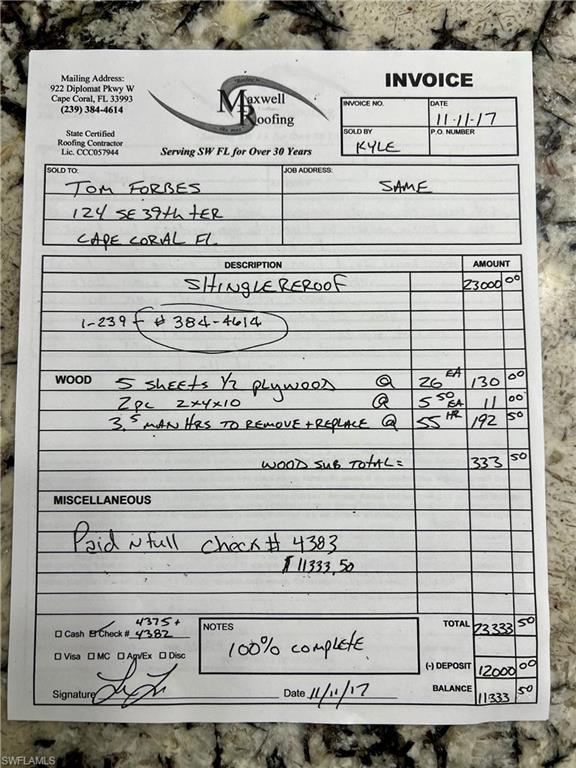 Mailing Address:
922 Diplomat Pkwy W
Cape Coral, FL 33993
(239) 384-4614
State Certified
Roofing Contractor
Lic. CCC057944
Maxwell
Roofing
Serving SW FL for Over 30 Years
INVOICE
INVOICE NO.
DATE
11-11-17
SOLD BY
KYLE
P.O. NUMBER
SOLD TO:
TOM FORBES
124 SE 39th tER
CAPE CORAL FL
JOB ADDRESS:
SAME
DESCRIPTION AMOUNT
SHINGLE REROOF 23000 00
1-239- # 384-4614
WOOD 5 sheets 1/2 plywood @ 26 EA 130 00
2pc 2x4x10 @ 5 50 EA 11 00
3.5 MAN HRS TO REMOVE + REPLACE @ 55 HR 192 50
WOOD SUB TOTAL = 333 50
MISCELLANEOUS
Paid n full check # 4383
$11333.50
4375 +
☐ Cash ☑ Check # 4382
☐ Visa ☐ MC ☐ AmEx ☐ Disc
Signature
NOTES
100% complete
Date 11/11/17
TOTAL 23333 50
(-) DEPOSIT 12000 00
BALANCE 11333 50
SWFLAMLS